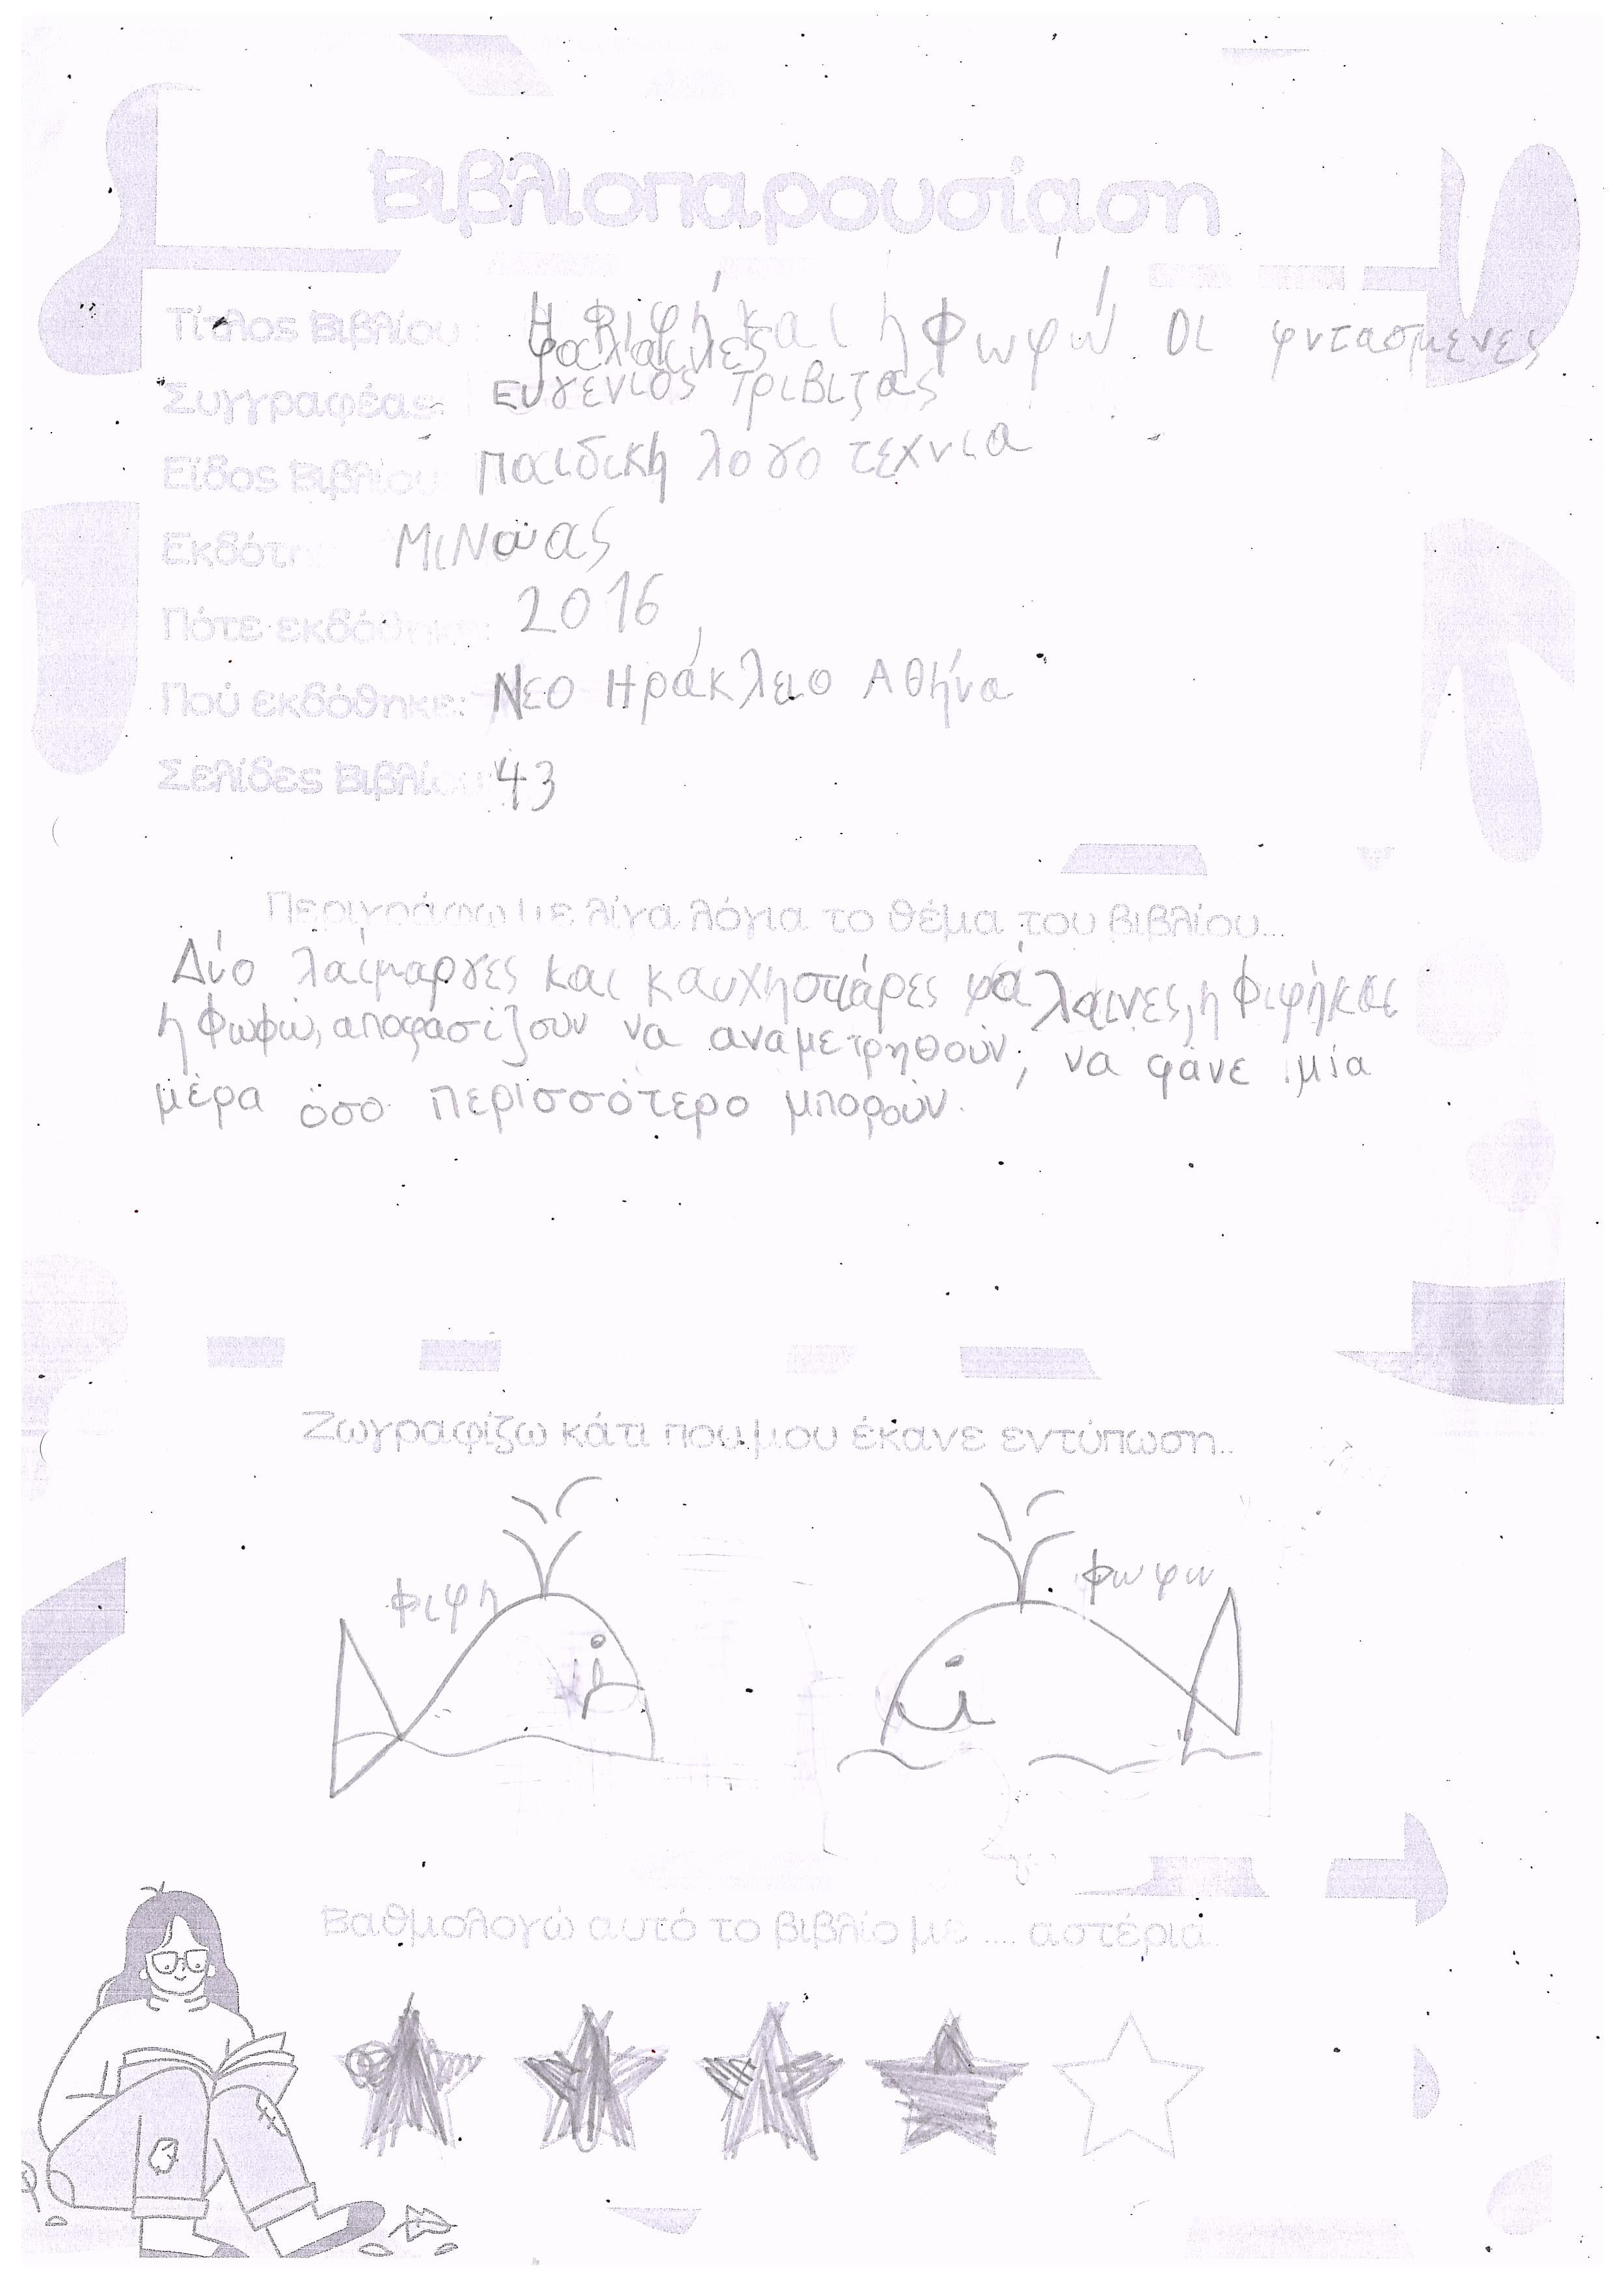 Βιβλιοπαρουσίαση
Τίτλος Βιβλίου Η Φιφή και η Φωφώ οι φντασμενες
φαλαινες
Συγγραφέας: Ευγενιος Τριβιζας
Είδος Βιβλίου Παιδικη λογοτεχνια
Εκδότη Μινωας
Πότε εκδόθηκε: 2016
Πού εκδόθηκε: Νεο Ηράκλειο Αθήνα
Σελίδες Βιβλίου 43
Περιγράφω με λίγα λόγια το θέμα του βιβλίου...
Δύο λαίμαργες και καυχησιάρες φάλαινες, η Φιφή και
η Φωφώ, αποφασίζουν να αναμετρηθούν, να φάνε μία
μέρα όσο περισσότερο μπορούν.
Ζωγραφίζω κάτι που μου έκανε εντύπωση..
φιφη
φωφω
Βαθμολογώ αυτό το βιβλίο με .... αστέρια.